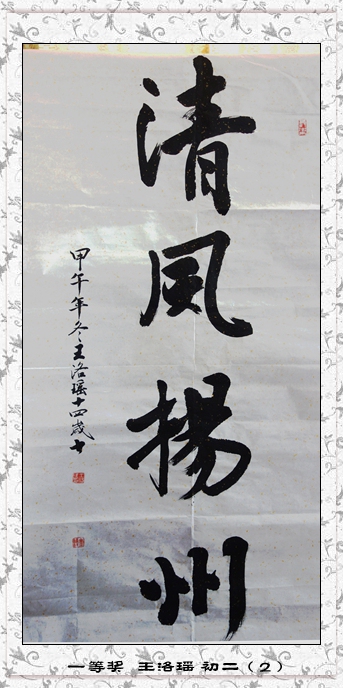 清风揚州
甲午年冬王洛瑶十四歲
一等奖 王洛瑶 初二（2）